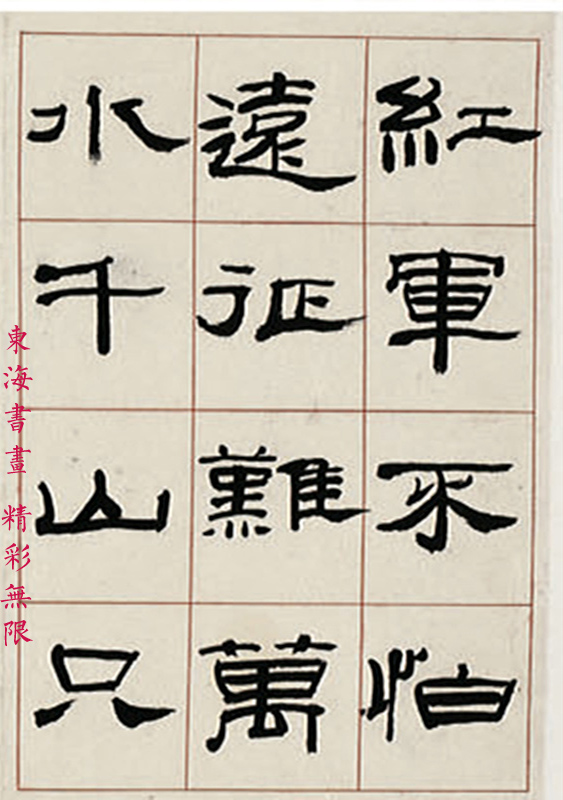 紅軍不怕
遠征難萬
水千山只
東海書畫 精彩無限